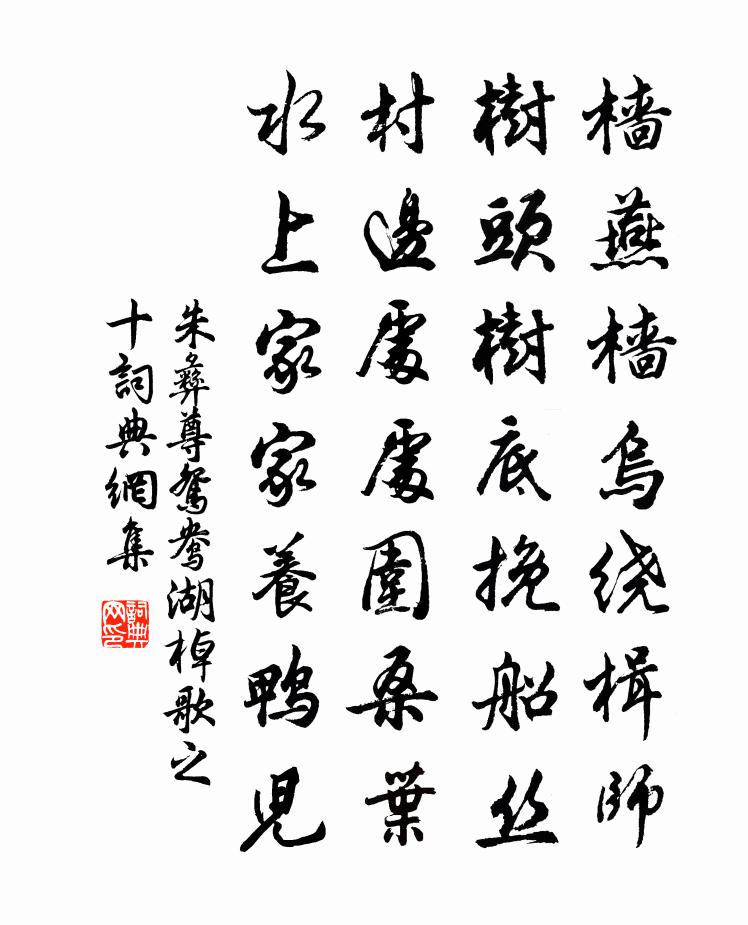 樯燕樯乌绕楫師
樹頭樹底挽船丝
村邊處處圍桑葉
水上家家養鴨児
朱彝尊鴛鴦湖棹歌之
十詞典網集
詞典网印